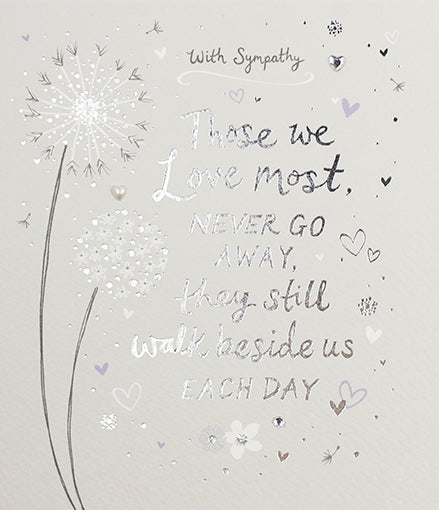 With Sympathy
Those we
Love most,
NEVER GO
AWAY,
they still
walk beside us
EACH DAY